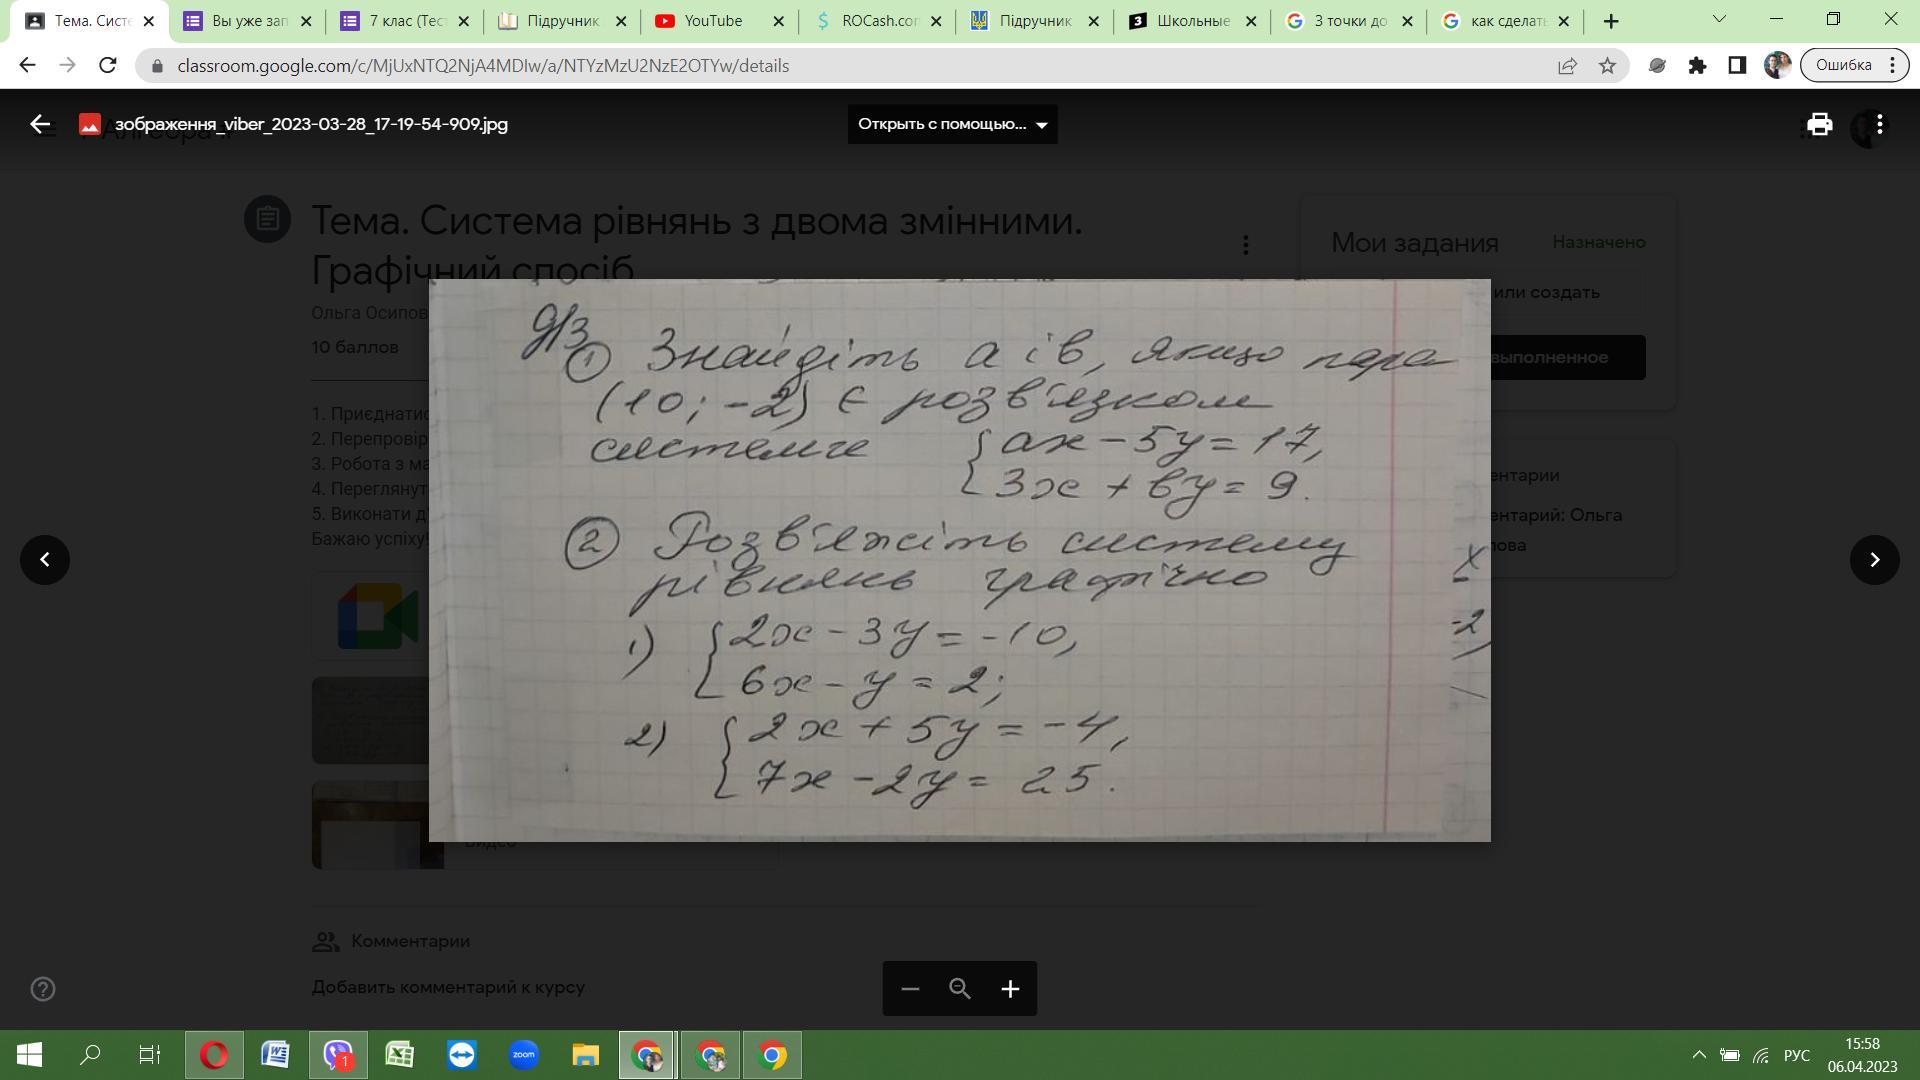 Тема. Систе
Вы уже зап
7 клас (Тес
Підручник
YouTube
ROCash.con
Підручник
Школьные
3 точки до
как сделать
classroom.google.com/c/MjUxNTQ2NjA4MDIw/a/NTYzMzU2NzE2OTYw/details
Ошибка
зображення_viber_2023-03-28_17-19-54-909.jpg
Открыть с помощью...
Тема. Система рівнянь з двома змінними.
Графічний спосіб
Мои задания
Назначено
Ольга Осипов
или создать
10 баллов
выполненное
1. Приєднатис
2. Перепровір
3. Робота з ма
4. Переглянут
5. Виконати д
Бажаю успіху!
ентарии
ентарий: Ольга
ова
Д/з
① Знайдіть a і в, якщо пара
(10; -2) є розв'язком
системи { ax - 5y = 17,
3x + вy = 9.
② Розв'яжіть систему
рівнянь графічно
1) { 2x - 3y = -10,
6x - y = 2;
2) { 2x + 5y = -4,
7x - 2y = 25.
x
-2
Видео
Комментарии
Добавить комментарий к курсу
zoom
1
РУС
15:58
06.04.2023